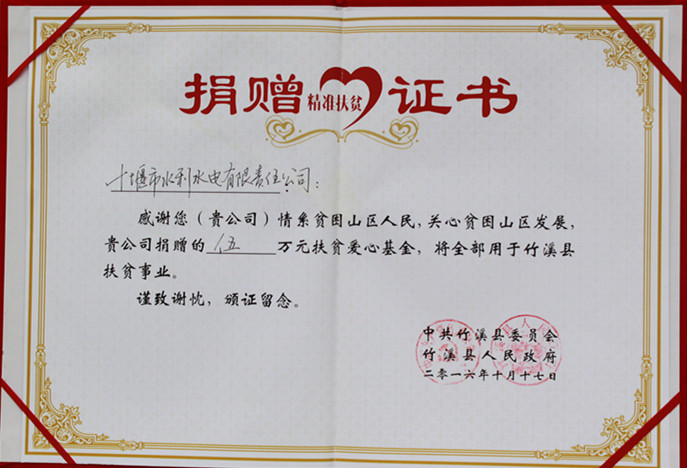 捐赠 精准扶贫 证书
十堰市水利水电有限责任公司：
感谢您（贵公司）情系贫困山区人民，关心贫困山区发展，
贵公司捐赠的 伍 万元扶贫爱心基金，将全部用于竹溪县
扶贫事业。
谨致谢忱，颁证留念。
中共竹溪县委员会
竹溪县人民政府
二零一六年十月十七日